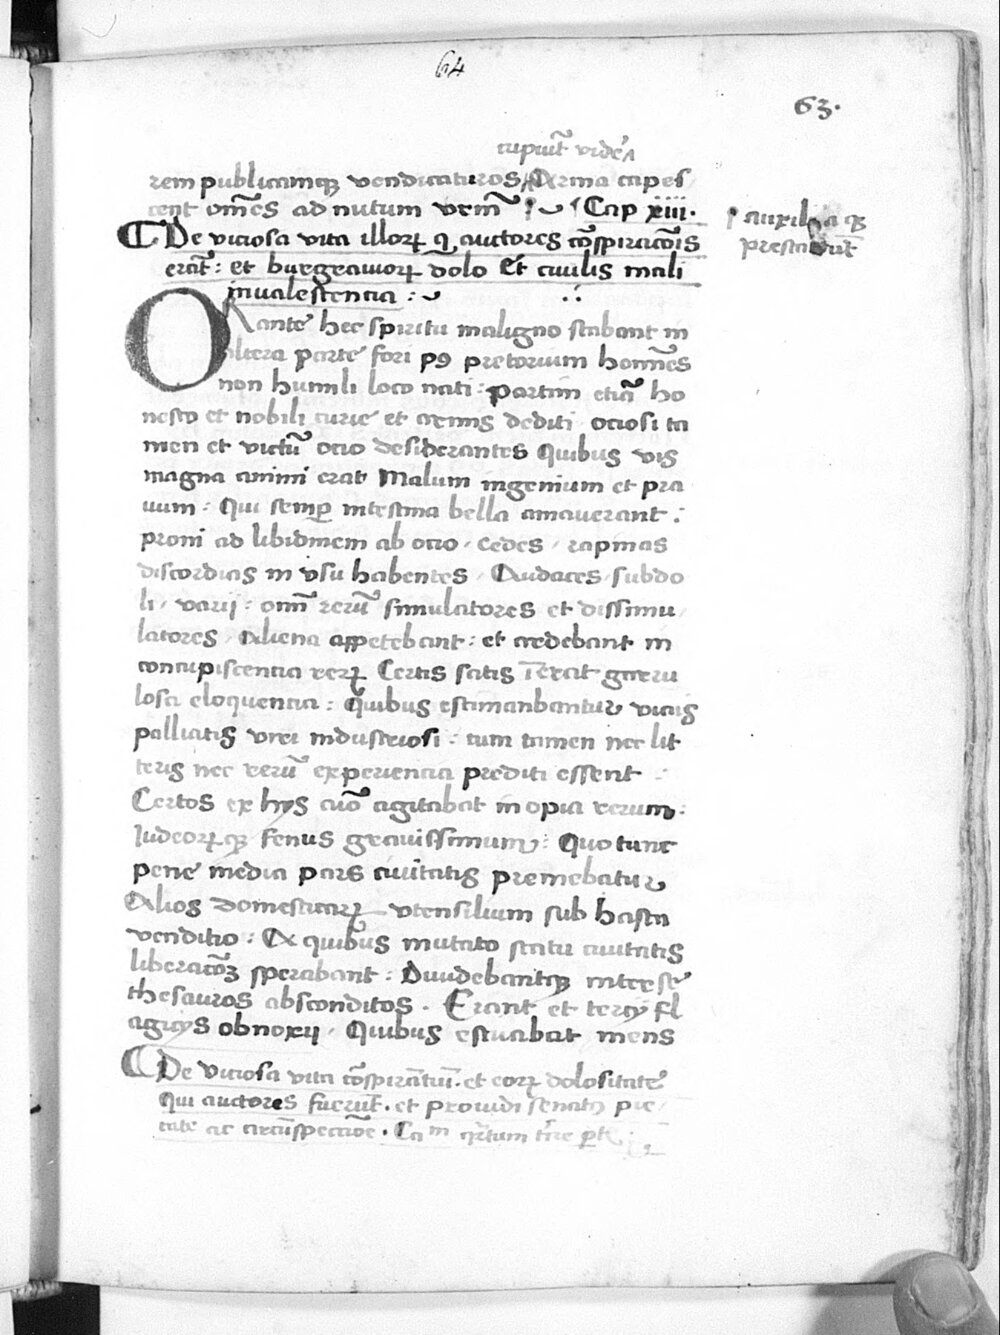 64
63.
cupiūt vidēr
rem publicamqꝫ vendicaturos Arma capes
cent om̄es ad nutum vr̄m Cap xiii.
auxilia qꝫ
prestabūt
De viciosa vita illoꝝ q̨ auctores ꝯ̄spiraco᷒is
erāt: et burgrauioꝝ dolo Et ciuilis mali
inualescencia :
ORante hec spiritu maligno stabant in
altera parte fori pꝰ pretorium homīes
non humili loco nati: partim etiā ho
nesto et nobili iure et armis dediti ociosi ta
men et victū ocio desiderantes Quibus vis
magna animi erat Malum ingenium et pra
uum: Qui semꝑ intestina bella amauerant:
proni ad libidinem ab ocio, cedes, rapinas
discordias in vsu habentes, Audaces, subdo
li, varij: om̄ī rerū simulatores et dissimu
latores, Aliena appetebant: et ardebant in
concupiscencia reꝝ Certis satis īerat garru
losa eloquencia: Quibus estimanbantur viciis
palliatis viri industriosi: cum tamen nec lit
teris nec rerū experiencia prediti essent
Certos ex hijs aūo agitabat inopia rerum:
Iudeoꝝqꝫ fenus grauissimum: Quo tunc
pene media pars ciuitatis premebatur
Alios domesticaꝝ vtensilium sub hasta
venditio: Ex quibus mutato statu ciuitatis
liberacōꝫ sperabant: Diuidebantqꝫ inter se
thesauros absconditos. Erant et tercij fl
agicijs obnoxij, Quibus estuabat mens
De viciosa vita ꝯ̄spirantiū. et eoꝝ dolositate
Qui auctores fuerūt. et prouidi senatꝰ pie
tate ac circūspectiōe. Cam